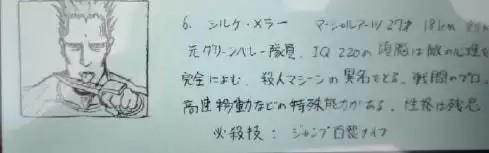 6. シルケ・メラー マーシャルアーツ 27才 181cm
元グリーンベレー隊員、IQ 220の頭脳は敵の心理を
完全によむ。殺人マシーンの異名をとる。戦闘のプロ。
高速移動などの特殊能力がある。性格は残忍
必殺技: ジャンプ百裂ナイフ